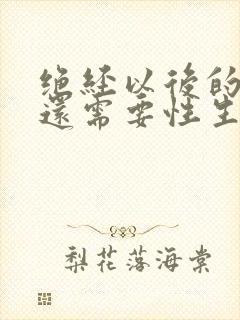 绝经以後的
還需要性生
梨花落海棠